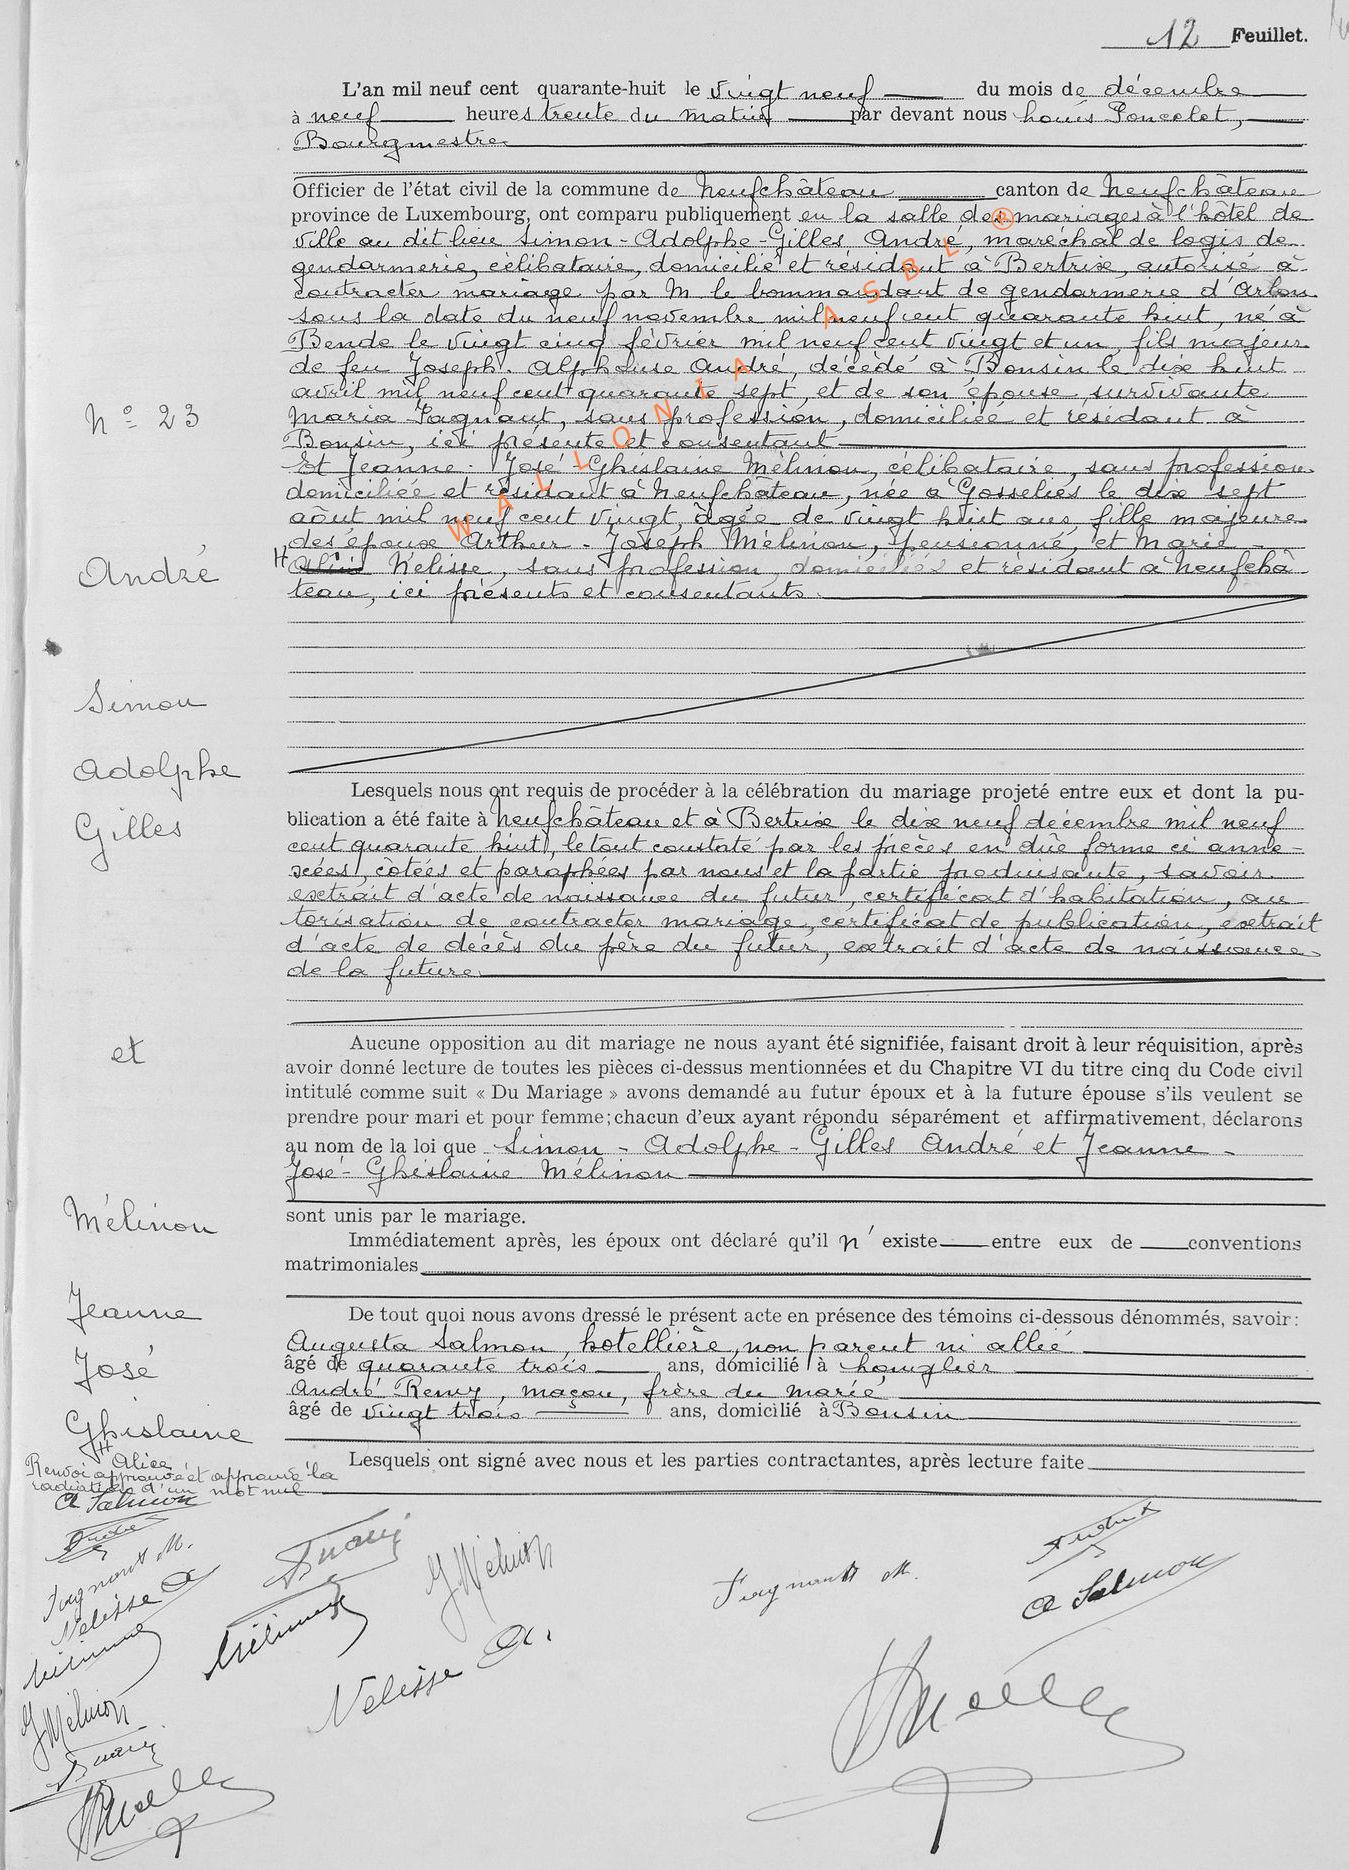 12 Feuillet.
L'an mil neuf cent quarante-huit le vingt neuf du mois de décembre
à neuf heures trente du matin par devant nous Louis Poncelet,
Bourgmestre
Officier de l'état civil de la commune de Neufchâteau canton de Neufchâteau
province de Luxembourg, ont comparu publiquement en la salle des mariages à l'hôtel de
ville au dit lieu Simon-Adolphe-Gilles André, maréchal de logis de
gendarmerie, célibataire, domicilié et résidant à Bertrix, autorisé à
contracter mariage par M le Commandant de gendarmerie d'Arlon
sous la date du neuf novembre mil neuf cent quarante huit, né à
Bende le vingt cinq février mil neuf cent vingt et un, fils majeur
de feu Joseph-Alphonse André, décédé à Bonsin le dix huit
avril mil neuf cent quarante sept, et de son épouse survivante
Maria Fagnant, sans profession, domiciliée et résidant à
Bonsin, ici présente et consentant
Et Jeanne-José-Ghislaine Mélinon, célibataire, sans profession
domiciliée et résidant à Neufchâteau, née à Gosselies le dix sept
août mil neuf cent vingt, âgée de vingt huit ans, fille majeure
des époux Arthur-Joseph Mélinon, pensionné, et Marie-
H Nélisse, sans profession, domiciliés et résidant à Neufchâ-
teau, ici présents et consentants.
WALLONIA ASBL ®
N° 23
André
Simon
Adolphe
Gilles
Lesquels nous ont requis de procéder à la célébration du mariage projeté entre eux et dont la pu-
blication a été faite à Neufchâteau et à Bertrix le dix neuf décembre mil neuf
cent quarante huit, le tout constaté par les pièces en dûe forme ci anne-
xées, côtées et paraphées par nous et la partie produisante, savoir.
extrait d'acte de naissance du futur, certificat d'habitation, au
torisation de contracter mariage, certificat de publication, extrait
d'acte de décès du père du futur, extrait d'acte de naissance
de la future.
et
Aucune opposition au dit mariage ne nous ayant été signifiée, faisant droit à leur réquisition, après
avoir donné lecture de toutes les pièces ci-dessus mentionnées et du Chapitre VI du titre cinq du Code civil
intitulé comme suit « Du Mariage » avons demandé au futur époux et à la future épouse s'ils veulent se
prendre pour mari et pour femme; chacun d'eux ayant répondu séparément et affirmativement, déclarons
au nom de la loi que Simon-Adolphe-Gilles André et Jeanne-
José-Ghislaine Mélinon
sont unis par le mariage.
Mélinon
Immédiatement après, les époux ont déclaré qu'il n'existe entre eux de conventions
matrimoniales
Jeanne
José
Ghislaine
De tout quoi nous avons dressé le présent acte en présence des témoins ci-dessous dénommés, savoir:
Augusta Salmon, hotellière, non parent ni allié
âgé de quarante trois ans, domicilié à Longlier
André Remy, maçon, frère du marié
âgé de vingt trois ans, domicilié à Bonsin
Lesquels ont signé avec nous et les parties contractantes, après lecture faite
H Alice
Renvoi approuvé et approuvé la
radiation d'un mot nul
A Salmon
André
Fagnant M.
Nélisse A
Mélinon
J Mélinon
André
J Mélinon
Mélinon
Nelisse A.
Fagnant M.
André
A Salmon